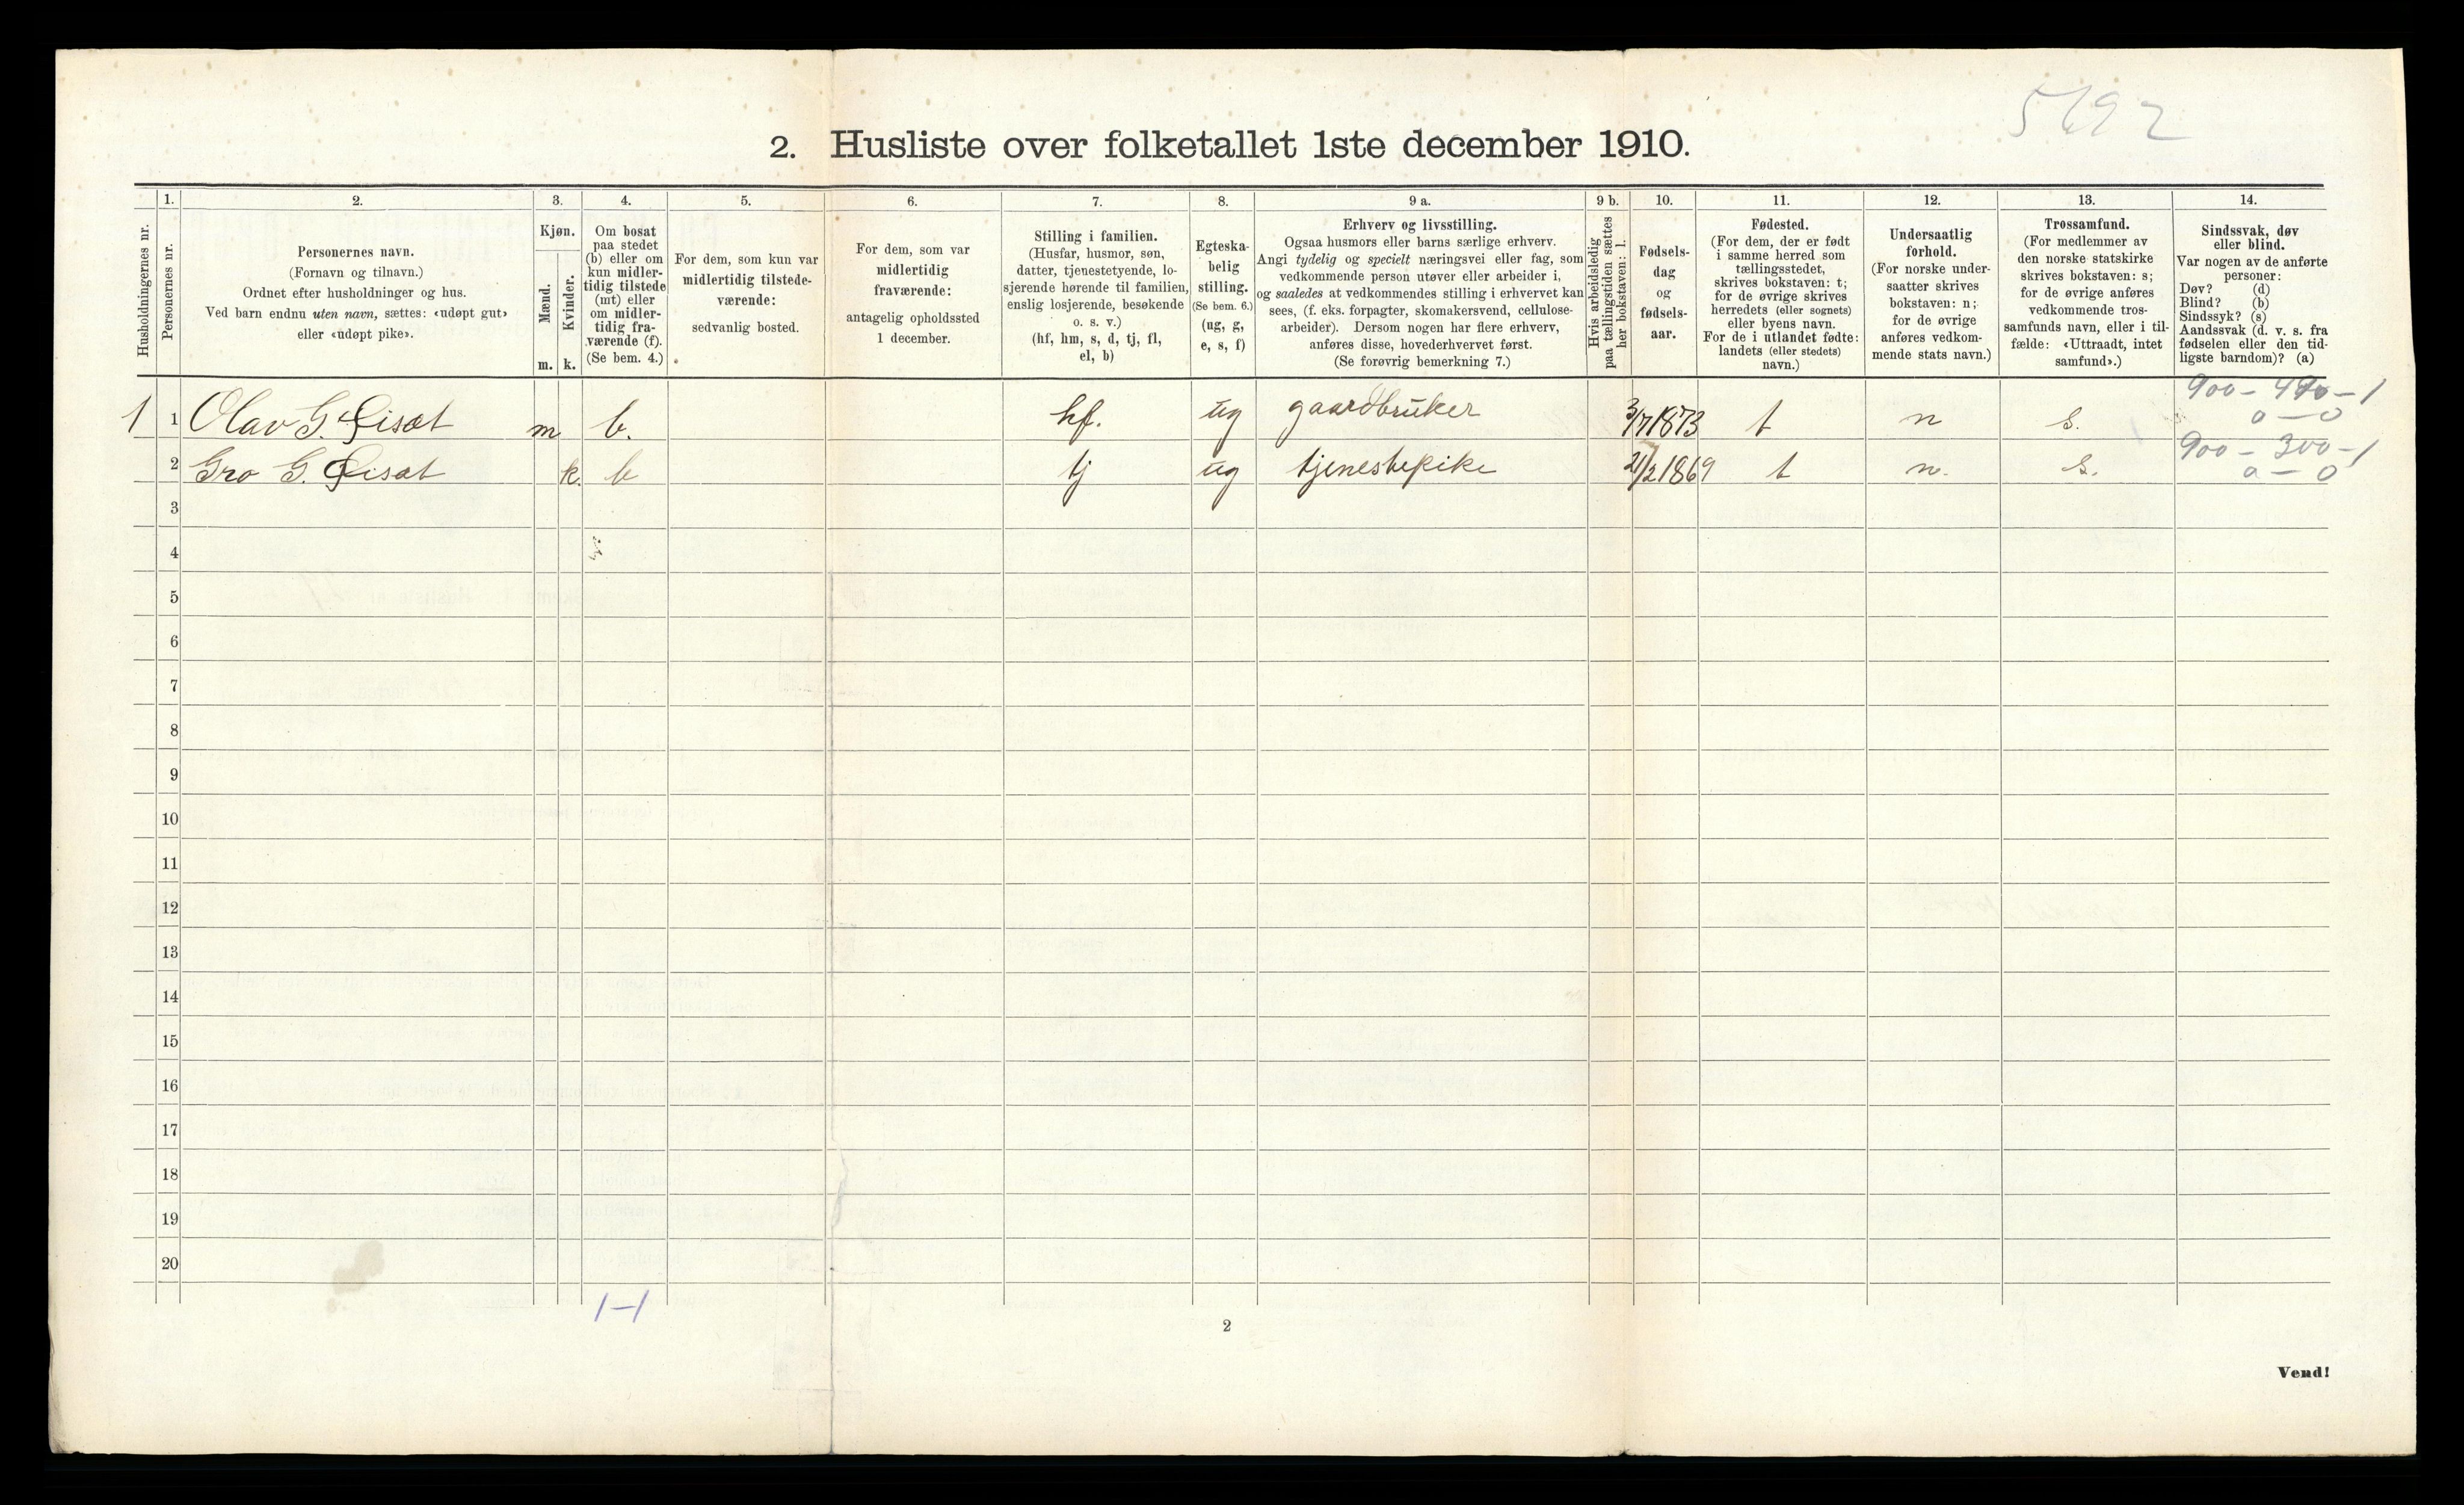 5692
2. Husliste over folketallet 1ste december 1910.
1. 2. 3. 4. 5. 6. 7. 8. 9 a. 9 b. 10. 11. 12. 13. 14.
Husholdningernes nr.
Personernes nr.
Personernes navn.
(Fornavn og tilnavn.)
Ordnet efter husholdninger og hus.
Ved barn endnu uten navn, sættes: «udøpt gut»
eller «udøpt pike».
Kjøn.
Mænd.
Kvinder.
m. k.
Om bosat
paa stedet
(b) eller om
kun midler-
tidig tilstede
(mt) eller
om midler-
tidig fra-
værende (f).
(Se bem. 4.)
For dem, som kun var
midlertidig tilstede-
værende:
sedvanlig bosted.
For dem, som var
midlertidig
fraværende:
antagelig opholdssted
1 december.
Stilling i familien.
(Husfar, husmor, søn,
datter, tjenestetyende, lo-
sjerende hørende til familien,
enslig losjerende, besøkende
o. s. v.)
(hf, hm, s, d, tj, fl,
el, b)
Egteska-
belig
stilling.
(Se bem. 6.)
(ug, g,
e, s, f)
Erhverv og livsstilling.
Ogsaa husmors eller barns særlige erhverv.
Angi tydelig og specielt næringsvei eller fag, som
vedkommende person utøver eller arbeider i,
og saaledes at vedkommendes stilling i erhvervet kan
sees, (f. eks. forpagter, skomakersvend, cellulose-
arbeider). Dersom nogen har flere erhverv,
anføres disse, hovederhvervet først.
(Se forøvrig bemerkning 7.)
Hvis arbeidsledig
paa tællingstiden sættes
her bokstaven: l.
Fødsels-
dag
og
fødsels-
aar.
Fødested.
(For dem, der er født
i samme herred som
tællingsstedet,
skrives bokstaven: t;
for de øvrige skrives
herredets (eller sognets)
eller byens navn.
For de i utlandet fødte:
landets (eller stedets)
navn.)
Undersaatlig
forhold.
(For norske under-
saatter skrives
bokstaven: n;
for de øvrige
anføres vedkom-
mende stats navn.)
Trossamfund.
(For medlemmer av
den norske statskirke
skrives bokstaven: s;
for de øvrige anføres
vedkommende tros-
samfunds navn, eller i til-
fælde: «Uttraadt, intet
samfund».)
Sindssvak, døv
eller blind.
Var nogen av de anførte
personer:
Døv? (d)
Blind? (b)
Sindssyk? (s)
Aandssvak (d. v. s. fra
fødselen eller den tid-
ligste barndom)? (a)
900 - 490 - 1
1 1 Olav G. Qisæt m b. hf. ug gaardbruker 3/7 1873 t n s. 0 - 0
900 - 300 - 1
2 Gro G. Qisæt k. b tj ug tjenestepike 21/2 1869 t n. s. 0 - 0
3
4
5
6
7
8
9
10
11
12
13
14
15
16
17
18
19
20
1-1
2
Vend!